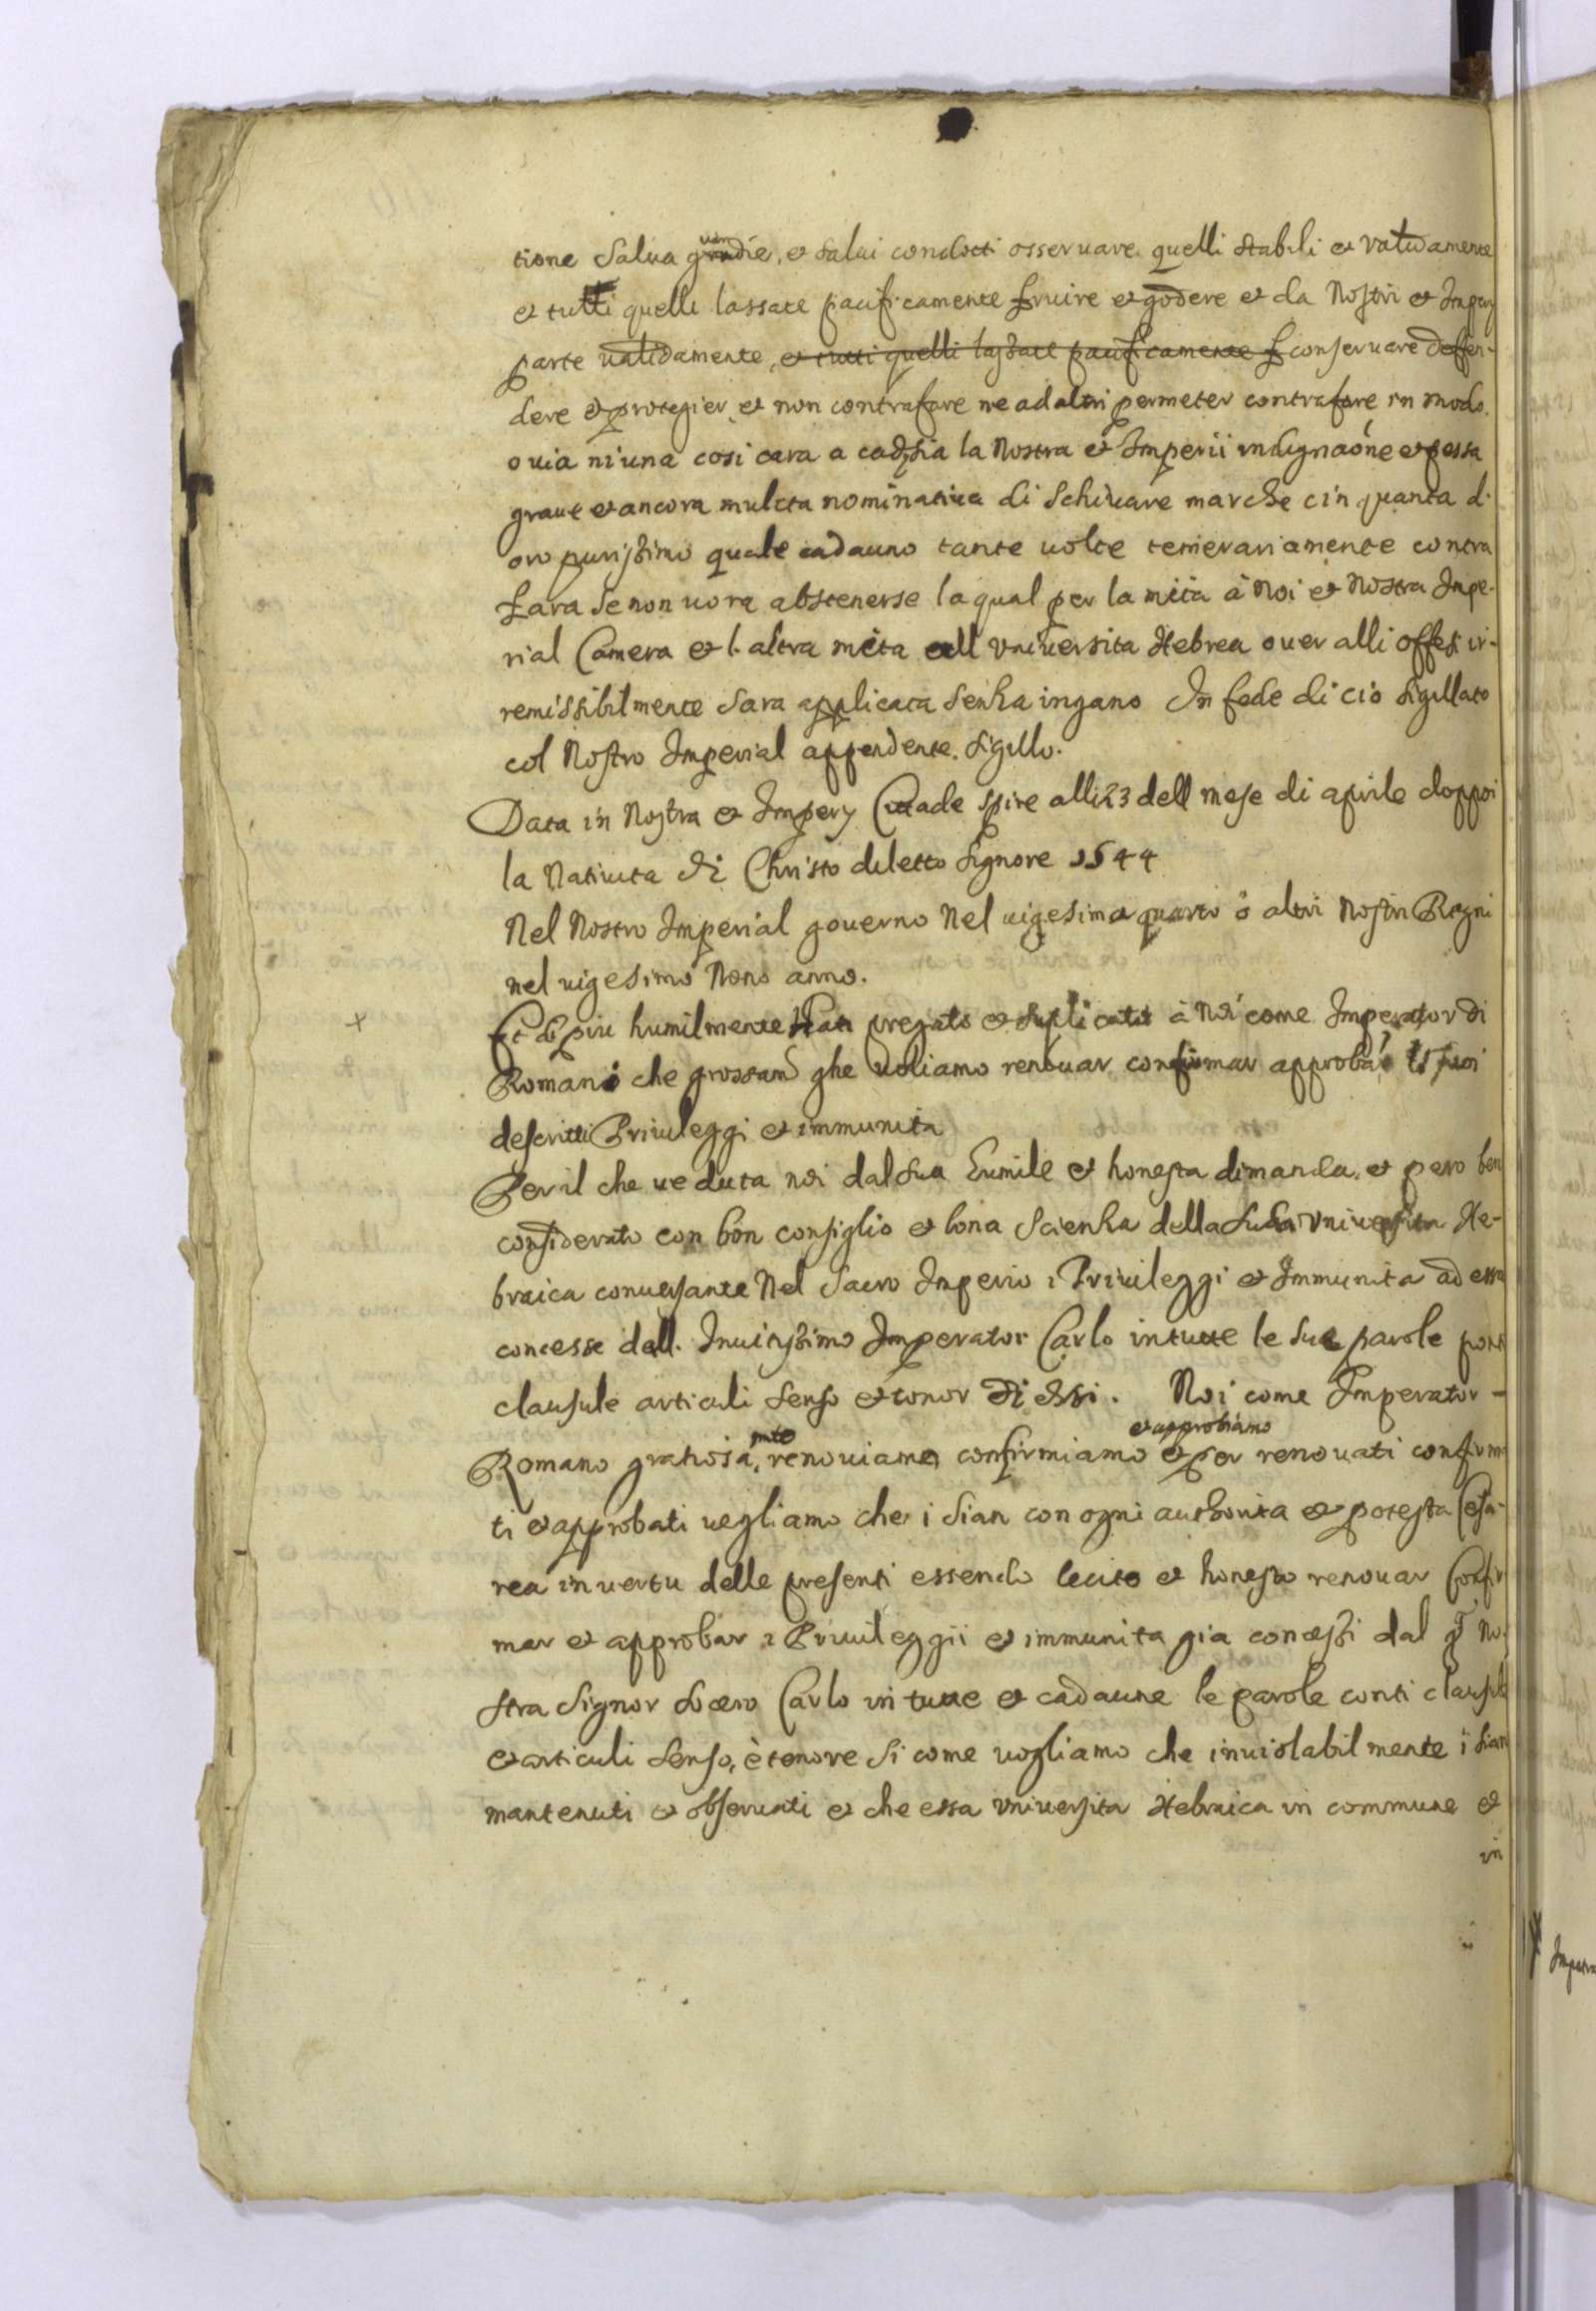 tione Salva guardie, et salui condotti osseruare quelli stabili et validamente
et tutti quelli lassate pacificamente fruire et godere et da Nostri et Impery
parte validamente, et tutti quelli lassate pacificamente f conseruare deffen-
dere et protegier et non contrafare ne ad altri permeter contrafare in modo
o uia niuna cosi cara a cad sia la Nostra et Imperii indignaone et pessa
graue et ancora mulcta nominatiua di Schiuare marche cinquanta d.
oro purissimo quale cadauno tante uolte temerariamente contra
fara se non uora abstenerse la qual per la mità à Noi et Nostra Impe-
rial Camera et l. altra mita all Vniuersita Hebrea ouer alli offesi ir-
remissibilmente sara applicata senha ingano In fede di ciò sigillato
col Nostro Imperial appendente sigillo.
Data in Nostra et Impery Citade Spire alli 23 dell mese di aprile doppoi
la Natiuita di Christo diletto Signore 1544
Nel Nostro Imperial gouerno Nel uigesimo quarto ò altri Nostri Regni
nel uigesimo Nono anno.
Et piu humilmente pregato et suplicato à Noi come Imperator di
Romani che ghe Voliamo renouar confirmar approbar suoi
descritti Priuileggi et immunita
Per il che ueduta noi dal sua humile et honesta dimanda. et pero ben
considerato con bon consiglio et bona Scienha della suda Vniuersita He-
braica conuersante Nel Sacro Imperio i Priuileggi et Immunita ad essa
concesse dall. Inuictissimo Imperator Carlo in tutte le sue parole ponti
clausule articuli senso et tonor di essi. Noi come Imperator -
Romano gratiosa mte renouiamo confirmiamo et approbiamo et per renouati confirma
ti et approbati uogliamo che i sian con ogni authorita et potesta Cesa-
rea in uertu delle presenti essendo lecito et honesto renouar Confir
mar et approbar i Priuileggii et immunita gia concessi dal No
stra Signor Socero Carlo in tutte et cadaune le parole conti clausule
et articuli senso, è tenore si come uogliamo che inuiolabilmente i sian
mantenuti et obseruati et che essa Vniuersita Hebraica in commune et
in